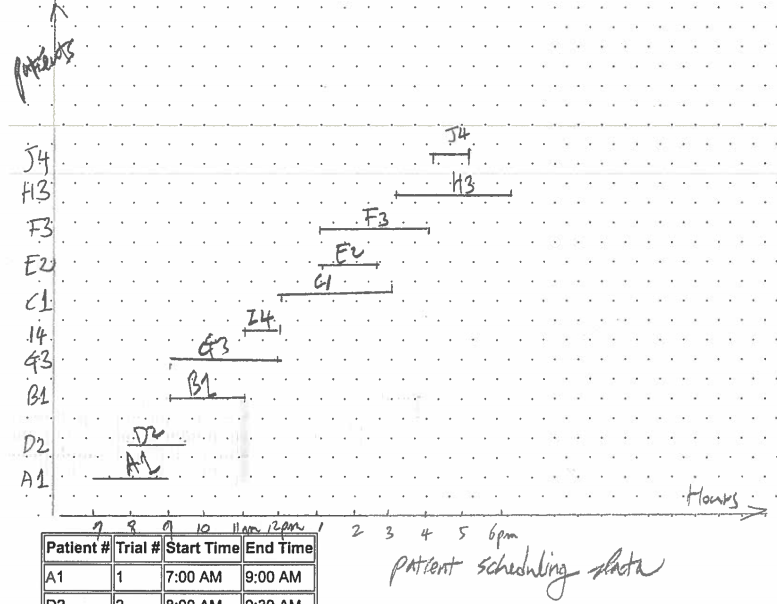 patients
J4
J4
H3
H3
F3
F3
E2
E2
C1
C1
I4
I4
G3
G3
B1
B1
D2
D2
A1
A1
Hours
7 8 9 10 11am 12pm 1 2 3 4 5 6pm
patient scheduling data
Patient # Trial # Start Time End Time
A1 1 7:00 AM 9:00 AM
D2 2 8:00 AM 9:30 AM